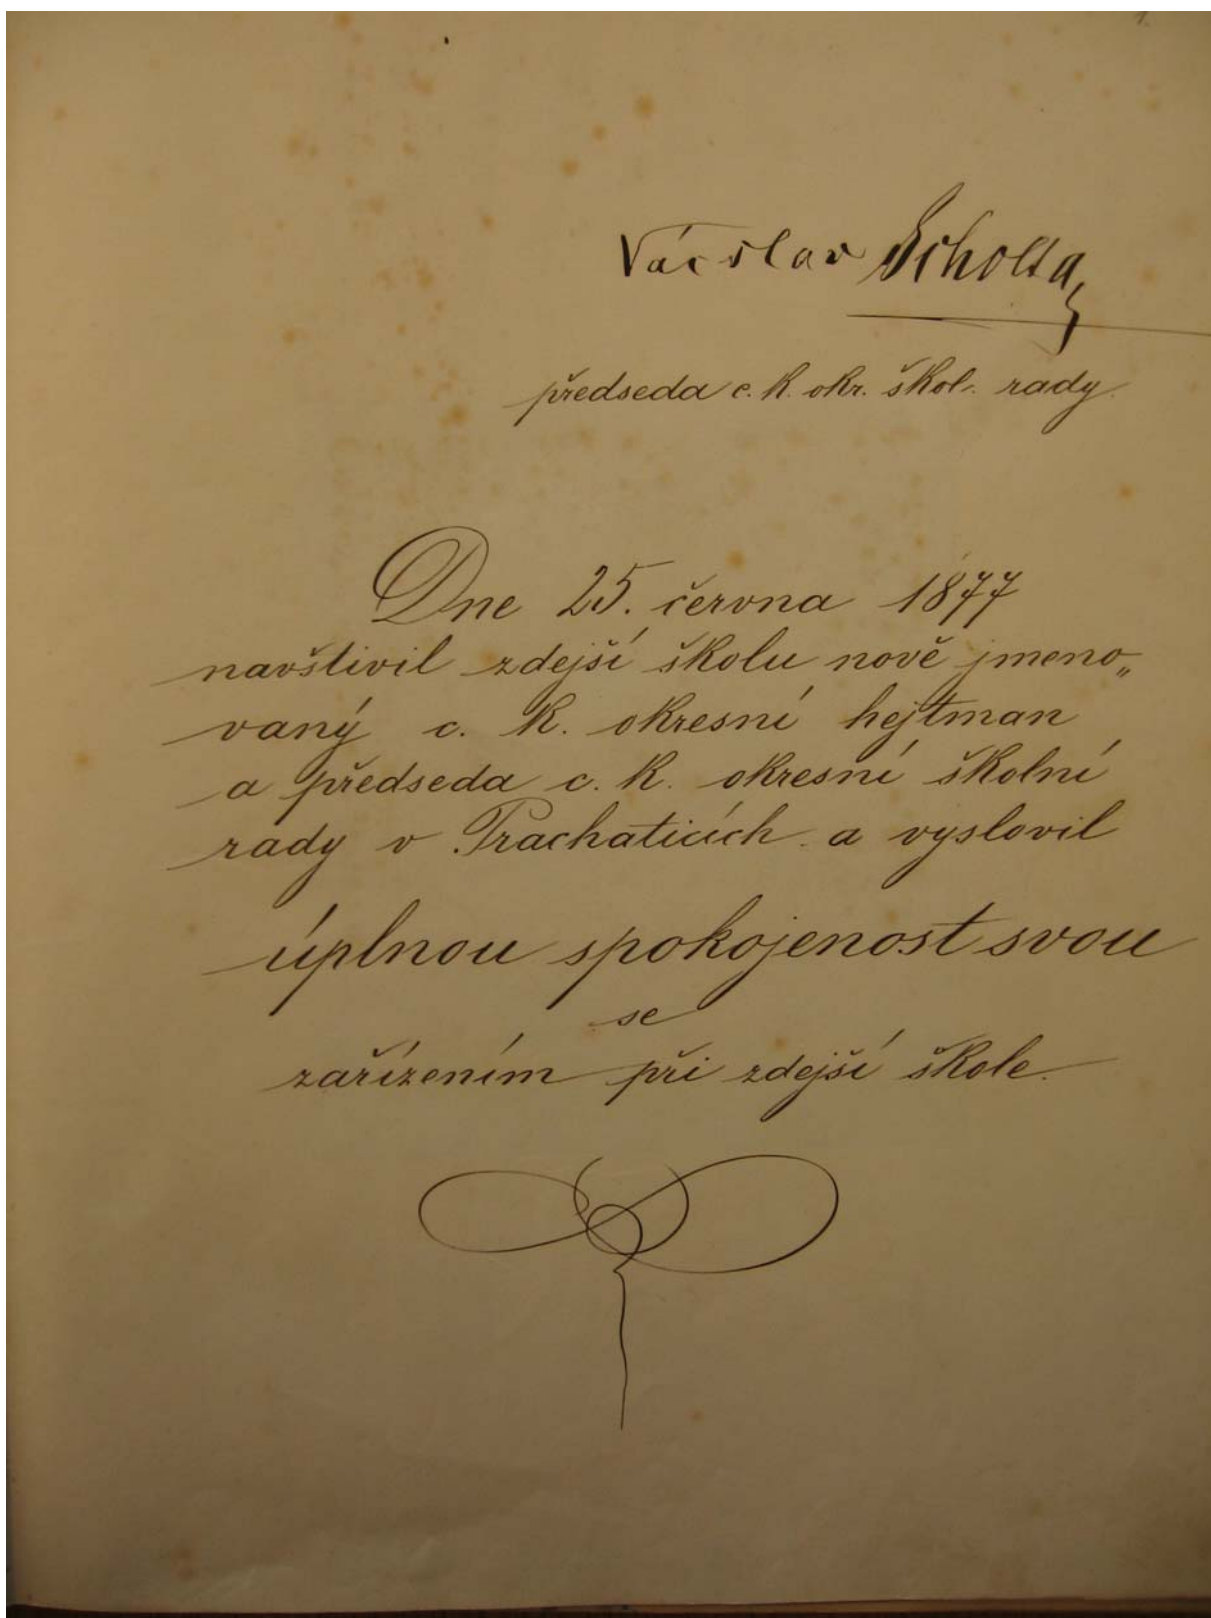 1.
Vácslav Scholta
předseda c. k. okr. škol. rady.
Dne 25. června 1877
navštivil zdejší školu nově jmeno„
vaný c. k. okresní hejtman
a předseda c. k. okresní školní
rady v Prachaticích a vyslovil
úplnou spokojenost svou
se
zařízením při zdejší škole.